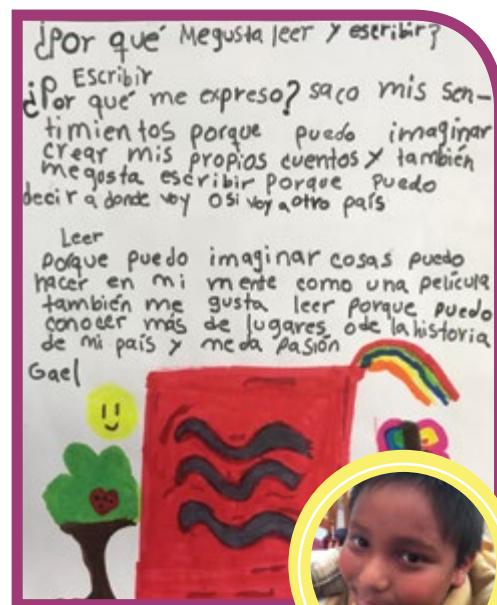 ¿Por qué Me gusta leer y escribir?
Escribir
¿Por qué me expreso? saco mis sen-
timientos porque puedo imaginar
crear mis propios cuentos y también
me gosta escribir porque puedo
decir a donde voy o si voy a otro país
Leer
porque puedo imaginar cosas puedo
hacer en mi mente como una película
también me gusta leer porque puedo
conocer más de lugares o de la historia
de mi país y me da pasión
Gael